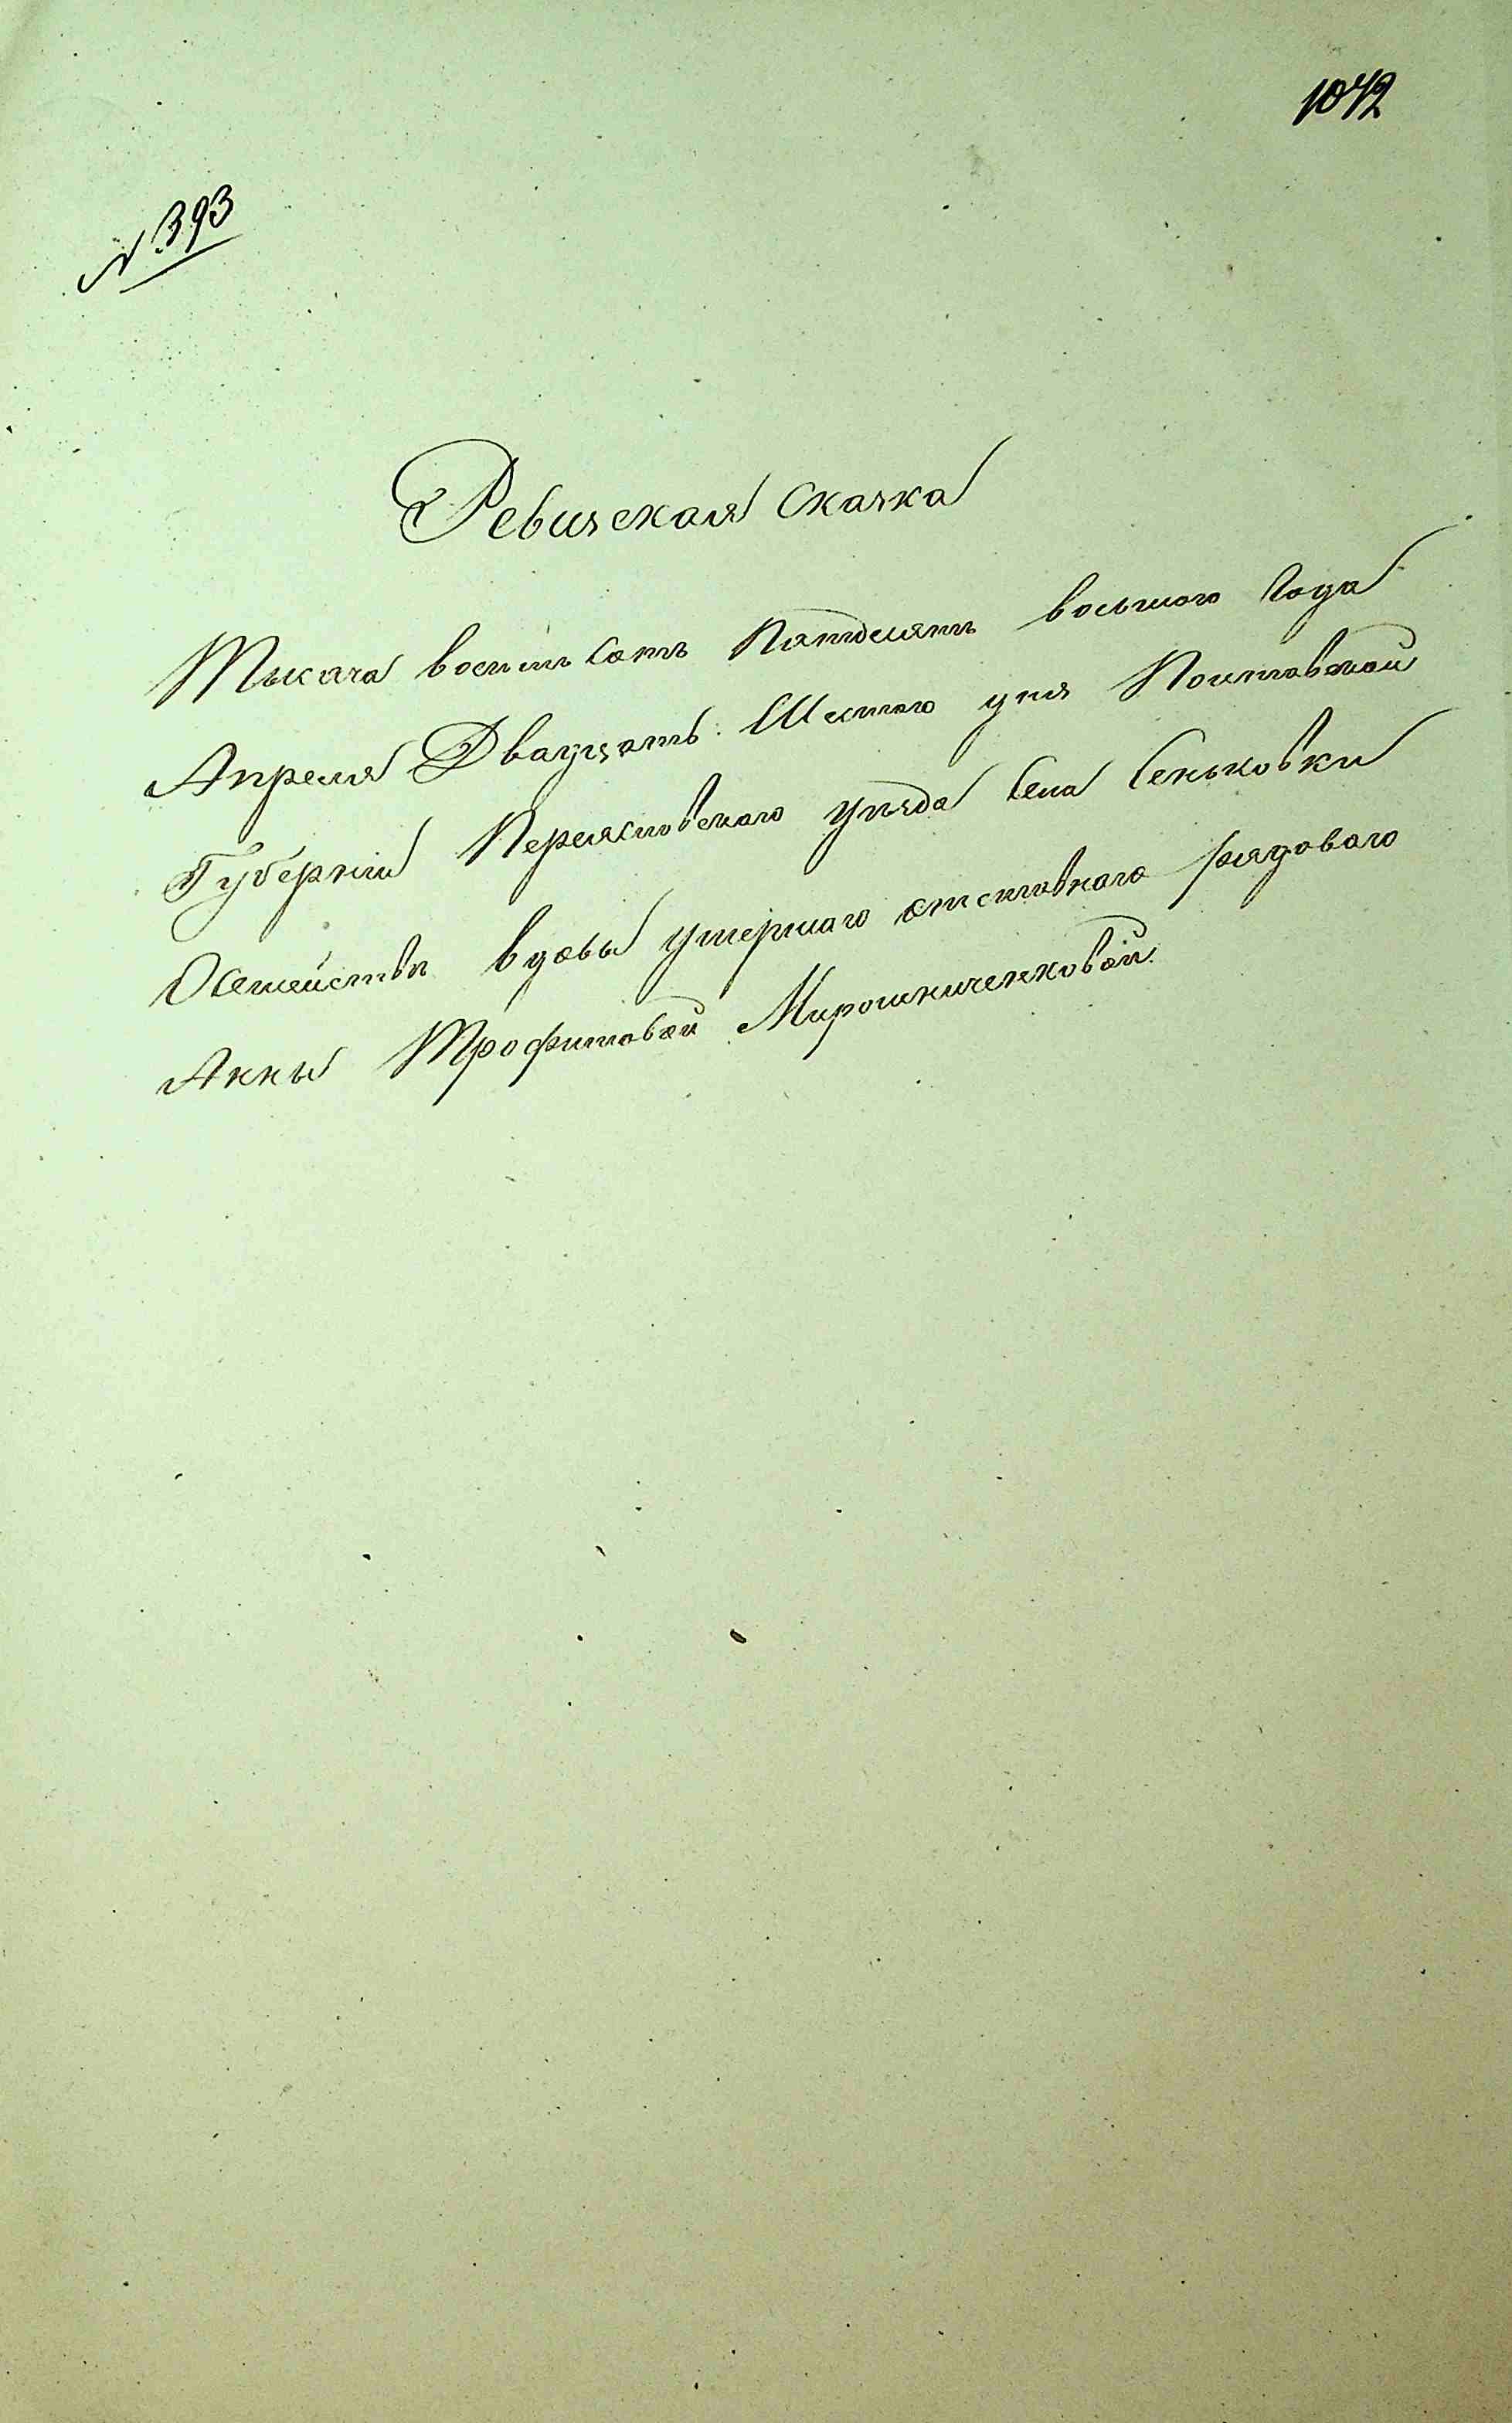 1042
№ 393
Ревизская сказка
Тысяча восемь сотъ Пятдесятъ восьмого Года
Апреля Двадцать Шестого дня Полтавской
Губернии Переясловского уезда Села Сеньковки
О семействе вдовы умершаго отставнаго рядоваго
Анны Трофимовой Мирошниченковой.